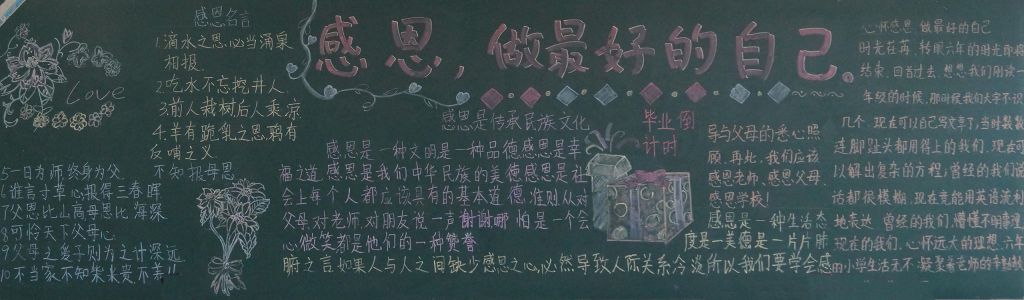 感恩，做最好的自己。
感恩名言
1.滴水之恩,必当涌泉
相报.
2.吃水不忘挖井人.
3.前人栽树后人乘凉
4.羊有跪乳之恩鸦有
反哺之义
不知报母恩
Love
5一日为师终身为父
6谁言寸草心报得三春晖
7父恩比山高母恩比海深
8可怜天下父母心
9父母之爱子则为之计深远
10不当家不知柴米贵不养儿
感恩是传承民族文化
感恩是一种文明是一种品德感恩是幸
福之道.感恩是我们中华民族的美德感恩是社
会上每个人都应该具有的基本道德准则从对
父母对老师对朋友说一声謝謝哪怕是一个会
心微笑都是他们的一种赞誉
毕业倒
计时
导与父母的悉心照
顾.再此.我们应该
感恩老师、感恩父母.
感恩学校!
感恩是一种生活态
度是一美德是一片片肺
腑之言如果人与人之间缺少感恩之心,必然导致人际关系冷淡所以我们要学会感
心怀感恩 做最好的自己
时光在再.转眼六年的时光即将
结束.回首过去.想想我们刚读一
年级的时候.那时候我们大字不识
几个.现在可以自己写文章了,当时数数
连脚趾头都用得上的我们.现在可
以解出复杂的方程,曾经的我们说
话都很模糊.现在竟能用英语流利
地表达 曾经的我们.懵懂不明事理
现在的我们.心怀远大的理想.六年
的小学生活无不
老师的辛勤教